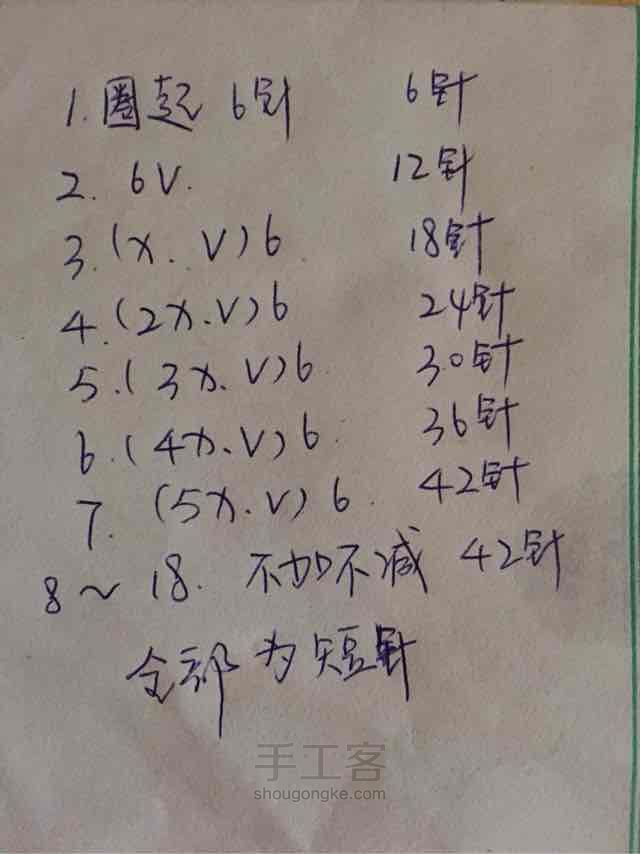 1. 圈起 6针 6针
2. 6V. 12针
3. (X. V)6 18针
4. (2X.V)6 24针
5. (3X.V)6. 30针
6. (4X.V)6. 36针
7. (5X.V)6. 42针
8~18. 不加不减 42针
全部为短针
手工客
shougongke.com